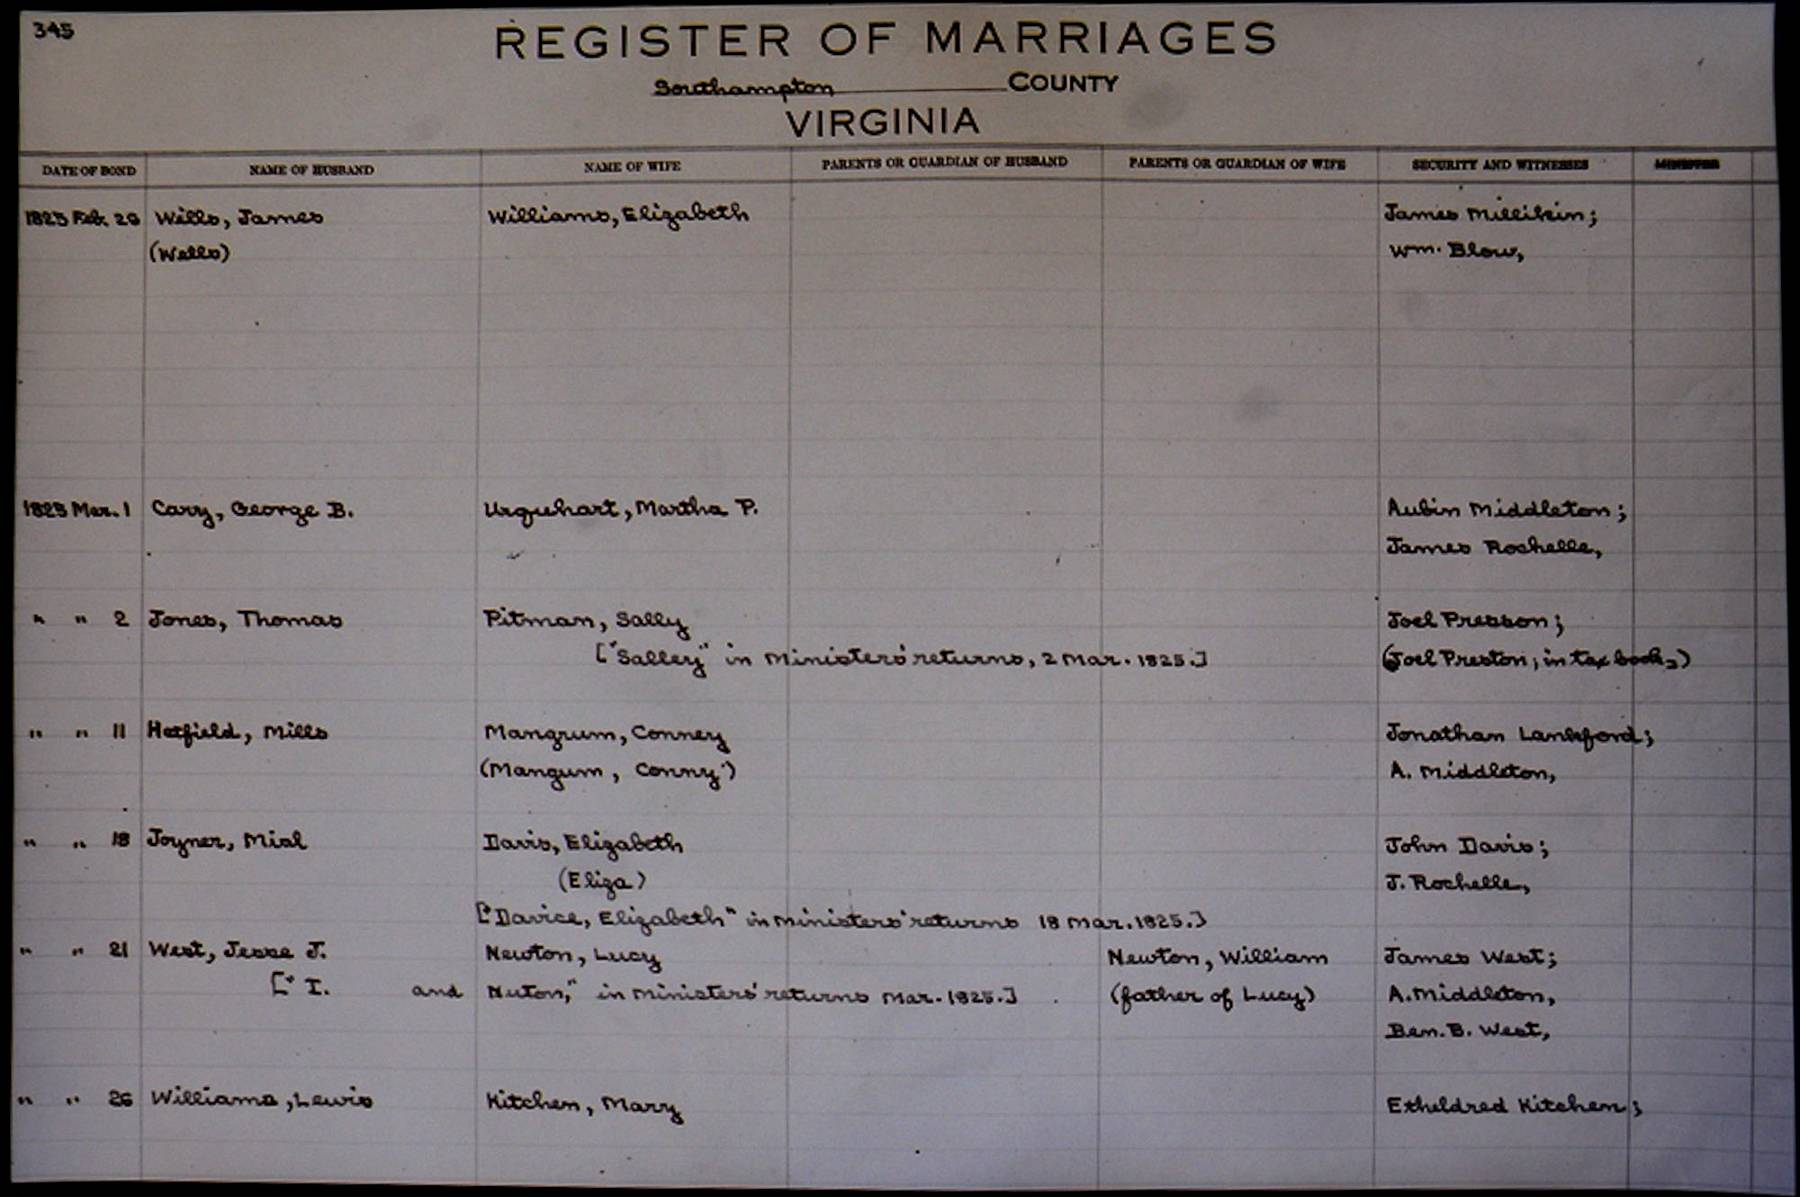 345
REGISTER OF MARRIAGES
Southampton COUNTY
VIRGINIA
DATE OF BOND NAME OF HUSBAND NAME OF WIFE PARENTS OR GUARDIAN OF HUSBAND PARENTS OR GUARDIAN OF WIFE SECURITY AND WITNESSES MINISTER
1825 Feb. 28 Wills, James Williams, Elizabeth James Millikin;
(Wells) Wm. Blow,
1825 Mar. 1 Cary, George B. Urquhart, Martha P. Aubin Middleton;
James Rochelle,
" " 2 Jones, Thomas Pitman, Sally Joel Presson;
["Salley" in Ministers' returns, 2 Mar. 1825.] (Joel Preston, in tax book,)
" " 11 Hatfield, Mills Mangrum, Conney Jonathan Lankford;
(Mangum, Conny) A. Middleton,
" " 18 Joyner, Mial Davis, Elizabeth John Davis;
(Eliza) J. Rochelle,
["Davice, Elizabeth" in Ministers' returns 18 Mar. 1825.]
" " 21 West, Jesse J. Newton, Lucy Newton, William James West;
[" I. and Nuton," in Ministers' returns Mar. 1825.] (father of Lucy) A. Middleton,
Ben. B. West,
" " 26 Williams, Lewis Kitchen, Mary Etheldred Kitchen;